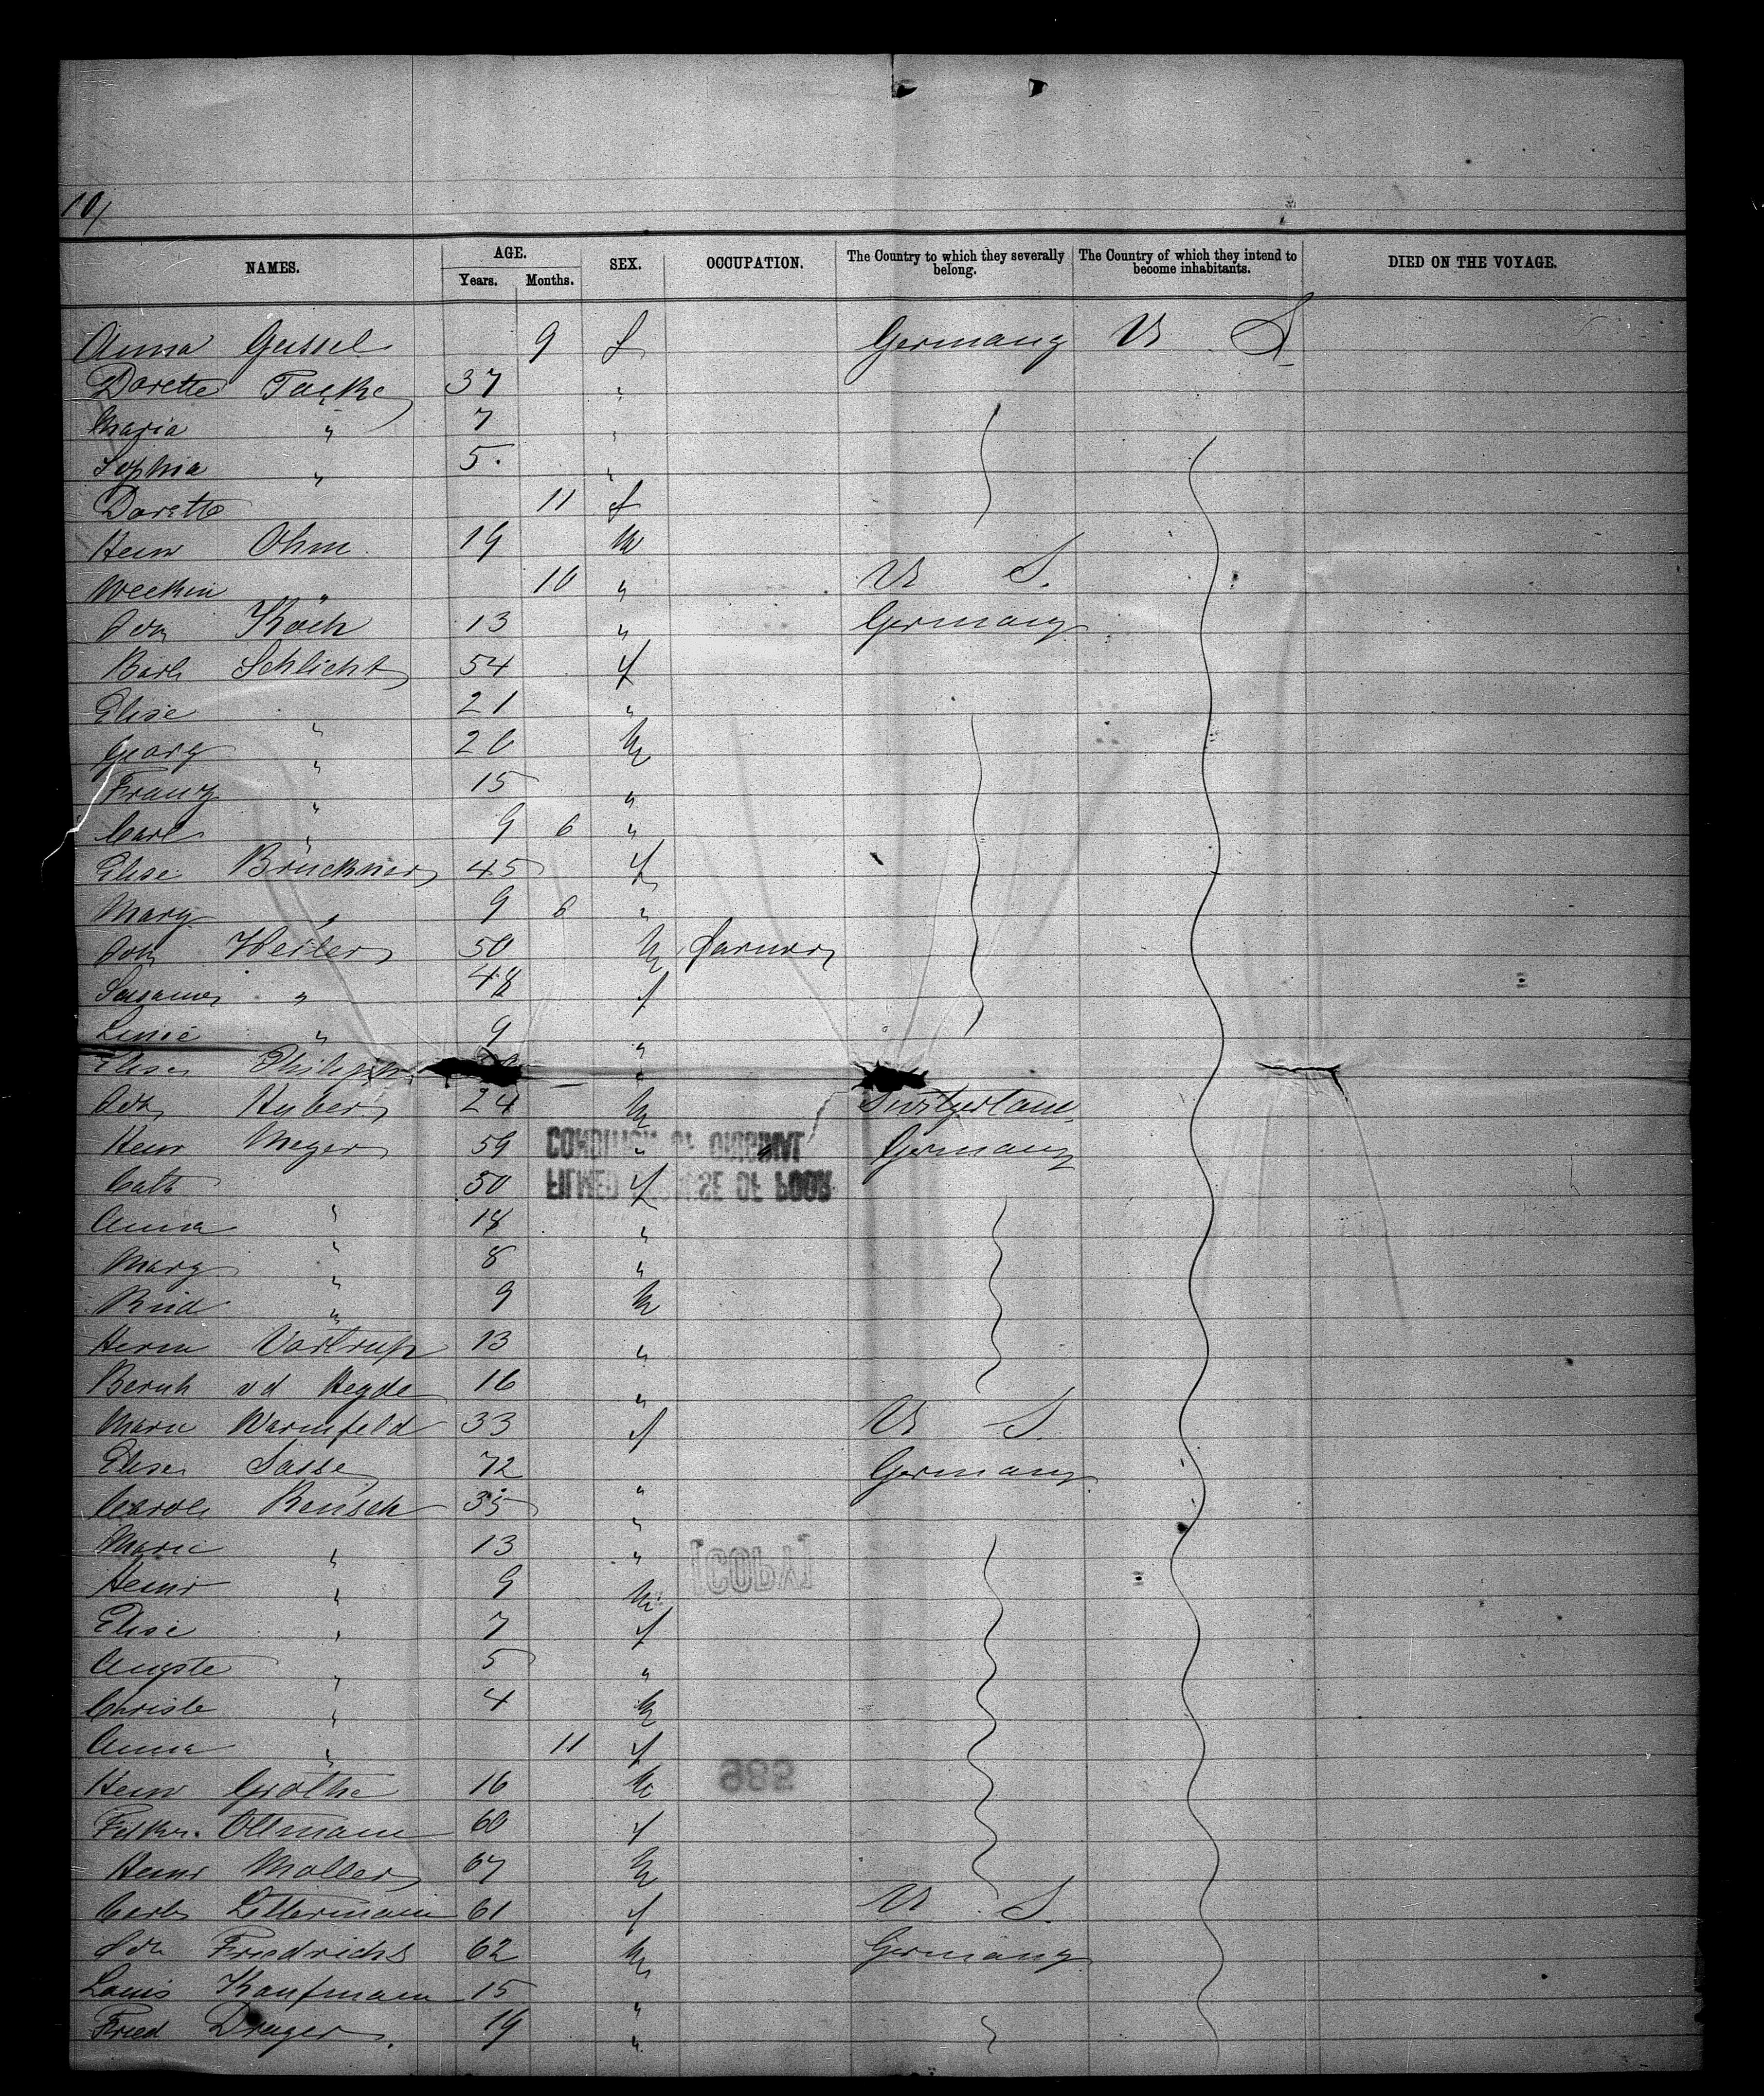 10/
NAMES. AGE. Years. Months. SEX. OCCUPATION. The Country to which they severally belong. The Country of which they intend to become inhabitants. DIED ON THE VOYAGE.
Anna Geissel 9 f Germany U S
Dorette Tacke 37 "
Maria " 7 "
Sophia " 5. "
Dorette 11 f
Heinr Ohm 19 m
" 10 " U S.
Joh Koch 13 " Germany
Barb Schlicht 54 f
Elise " 21 "
Georg " 20 m
Franz " 15 "
Carl " 9 6 "
Elise Bruckner 45 f
Marg " 9 6 "
Joh Heiler 50 m Farmer
Susanna " 48 f
" 9 "
Elise Philipp "
Joh Huber 24 m Switzerland
Heinr Meyer 59 " Germany
CONDITION OF ORIGINAL
Cath " 50 f
FILMED BECAUSE OF POOR
Anna " 18 "
Marg " 8 "
Rud " 9 m
Herm Vortrup 13 "
Bernh v d Heyde 16 "
Marie Warmfeld 33 f U S.
Elise Sasse 72 " Germany
Carole Reusch 35 "
Marie " 13 "
[COPY]
Heinr " 9 m
Elise " 7 f
Auguste " 5 "
Christe " 4 m
Anna " 11 f
Heinr Grothe 16 m
982
Oltmann 60 f
Heinr Moller 67 m
Carle Lettermann 61 f U S.
Joh Friedrichs 62 m Germany
Louis Kaufmann 15 "
Fried Drager. 19 "